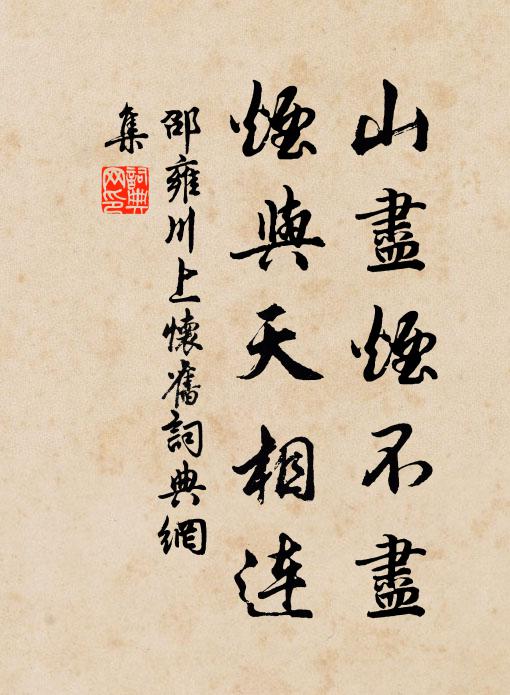 山盡煙不盡
煙與天相连
邵雍川上懷舊詞典網
集
詞典
网印